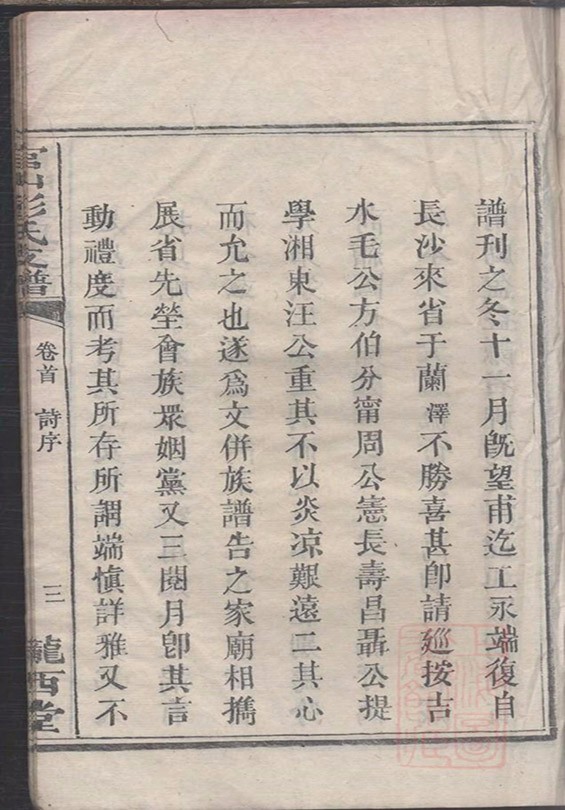 譜刊之冬十一月旣望甫迄工永端復自
長沙來省于蘭澤不勝喜甚卽請廵按吉
水毛公方伯分甯周公憲長壽昌聶公提
學湘東汪公重其不以炎凉艱遠二其心
而允之也遂爲文併族譜告之家廟相擕
展省先塋會族眾姻黨又三閱月卽其言
動禮度而考其所存所謂端愼詳雅又不
山彭氏支譜
卷首 詩序
三
龍西堂